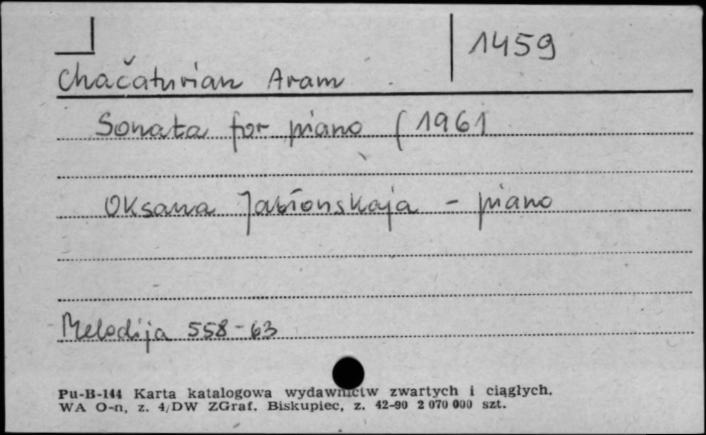 1459
Chačaturian Aram
Sonata for piano (1961
Oksana Jabłonskaja - piano
Melodija 558-63
Pu-B-144 Karta katalogowa wydawnictw zwartych i ciągłych.
WA O-n, z. 4/DW ZGraf. Biskupiec, z. 42-90 2 070 000 szt.